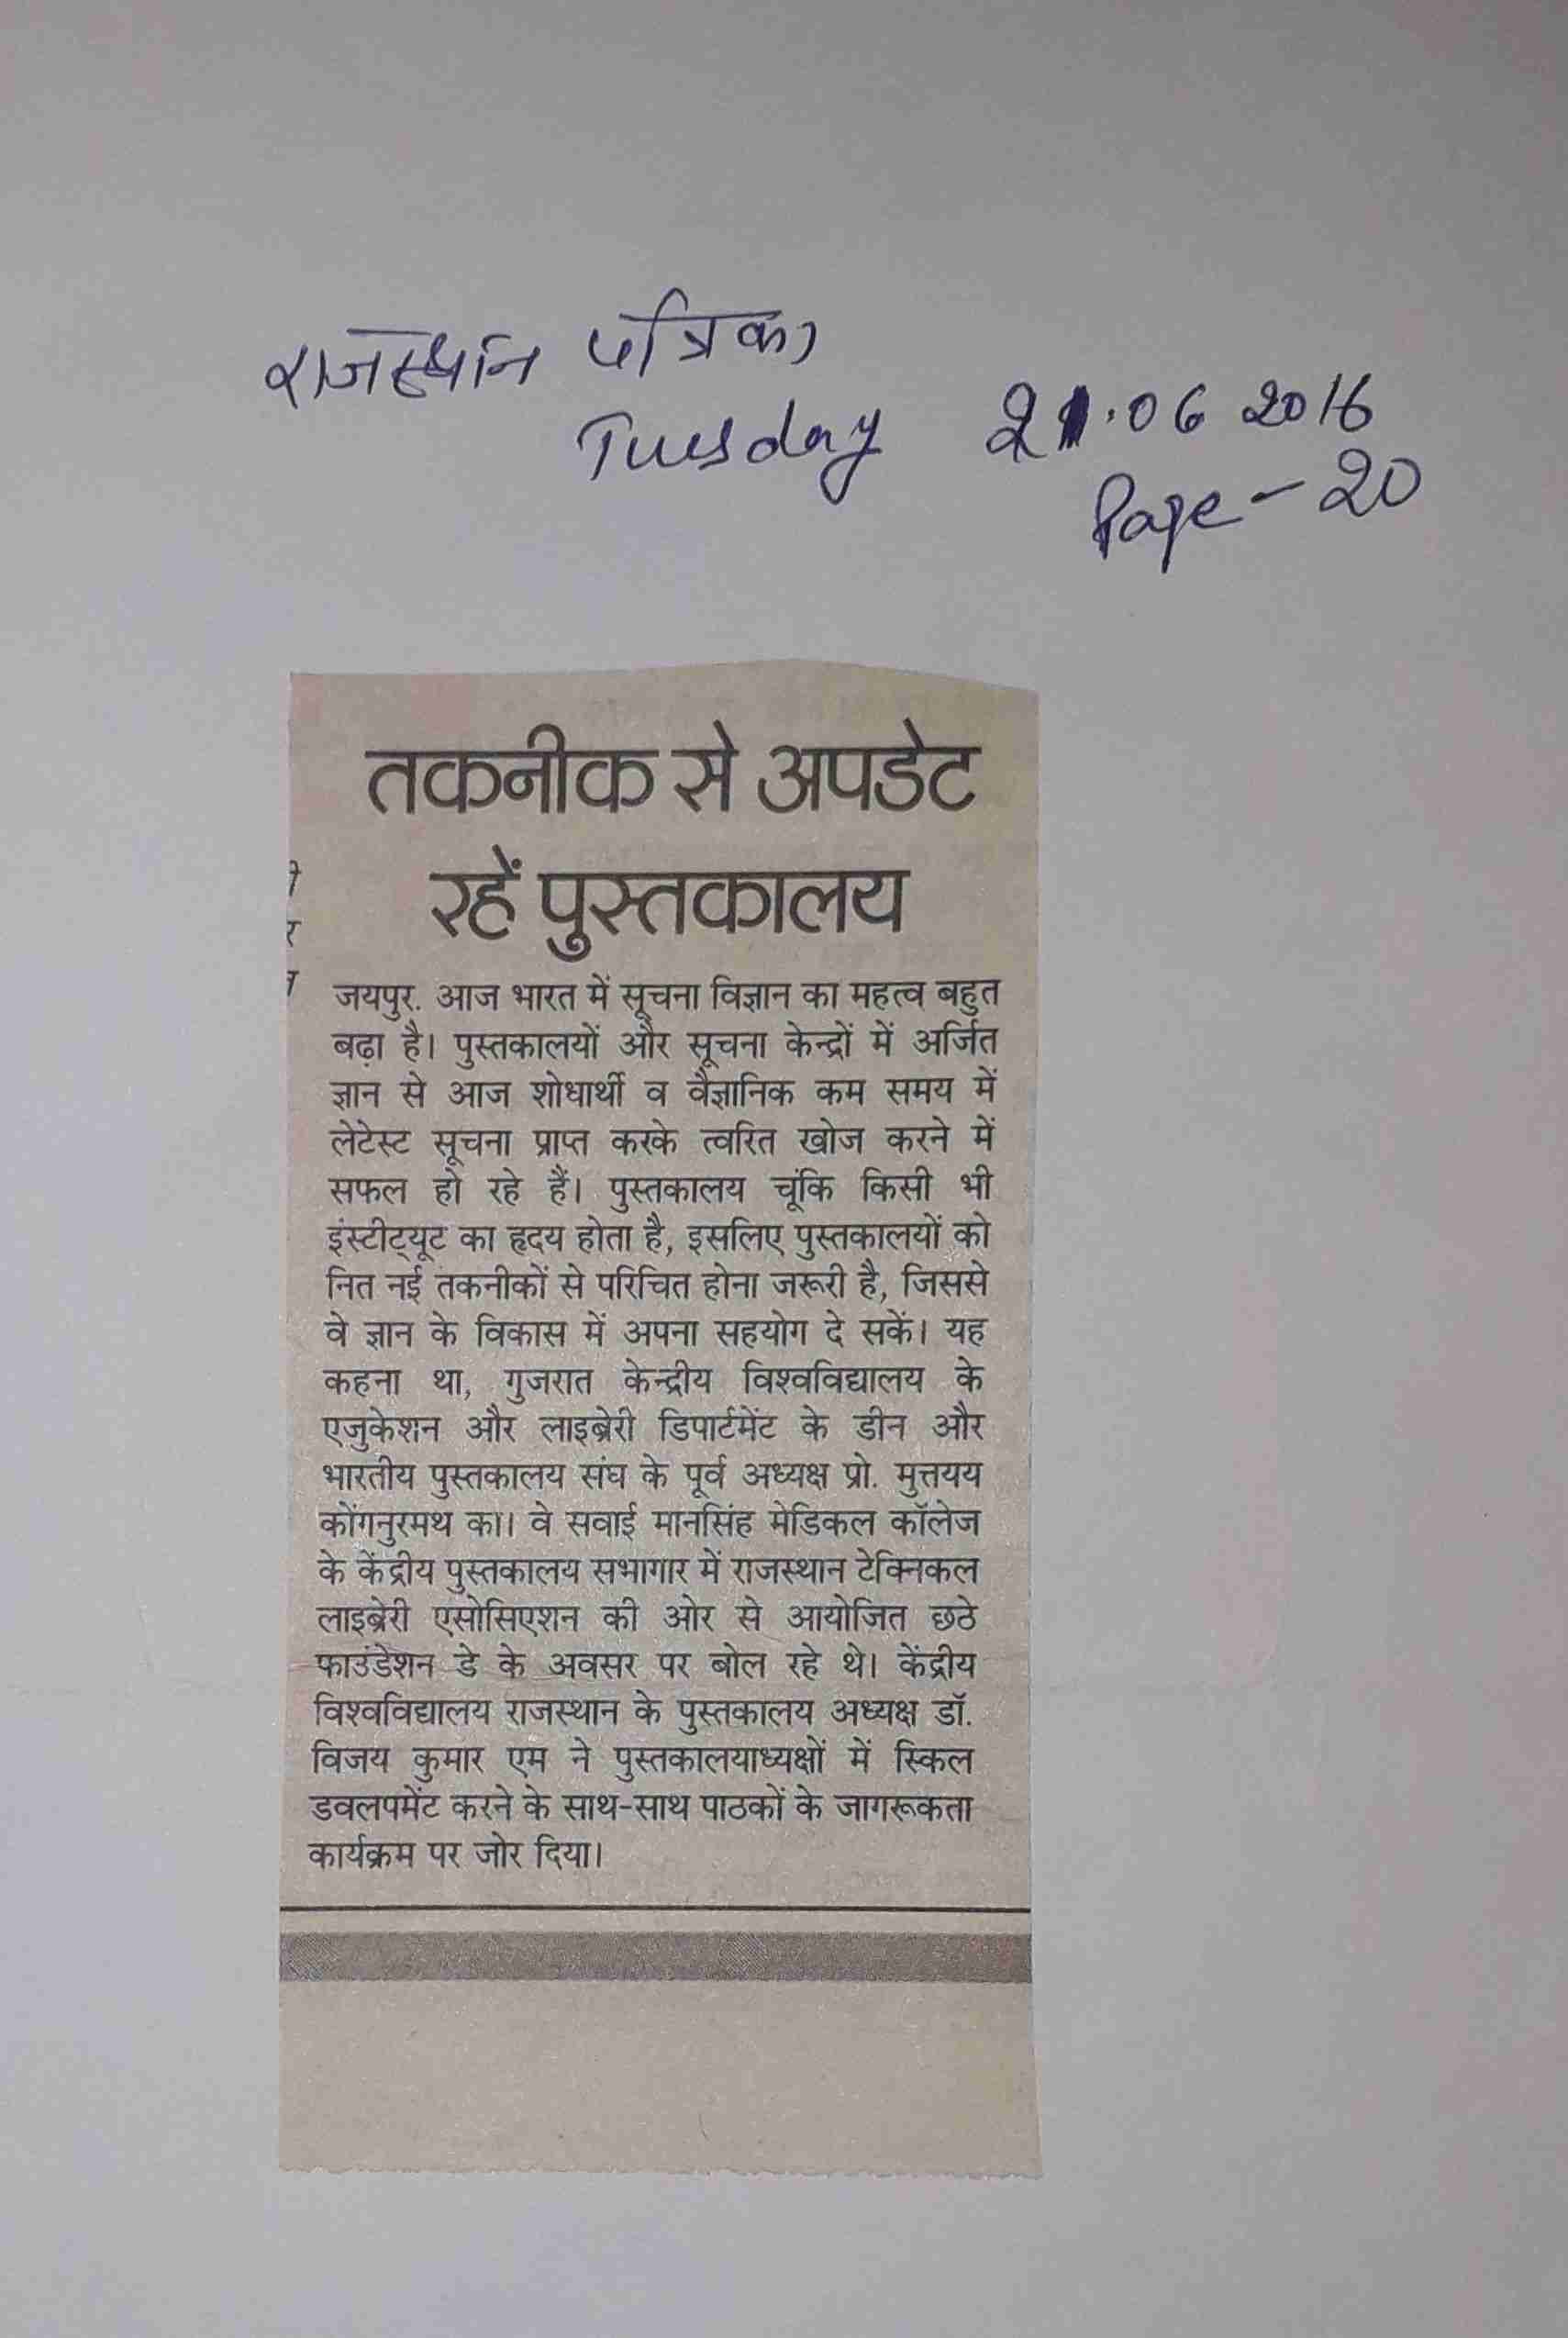 राजस्थान पत्रिका
Tuesday 21.06 2016
Page - 20
तकनीक से अपडेट
रहें पुस्तकालय
जयपुर. आज भारत में सूचना विज्ञान का महत्व बहुत
बढ़ा है। पुस्तकालयों और सूचना केन्द्रों में अर्जित
ज्ञान से आज शोधार्थी व वैज्ञानिक कम समय में
लेटेस्ट सूचना प्राप्त करके त्वरित खोज करने में
सफल हो रहे हैं। पुस्तकालय चूंकि किसी भी
इंस्टीट्यूट का हृदय होता है, इसलिए पुस्तकालयों को
नित नई तकनीकों से परिचित होना जरूरी है, जिससे
वे ज्ञान के विकास में अपना सहयोग दे सकें। यह
कहना था, गुजरात केन्द्रीय विश्वविद्यालय के
एजुकेशन और लाइब्रेरी डिपार्टमेंट के डीन और
भारतीय पुस्तकालय संघ के पूर्व अध्यक्ष प्रो. मुत्तयय
कोंगनुरमथ का। वे सवाई मानसिंह मेडिकल कॉलेज
के केंद्रीय पुस्तकालय सभागार में राजस्थान टेक्निकल
लाइब्रेरी एसोसिएशन की ओर से आयोजित छठे
फाउंडेशन डे के अवसर पर बोल रहे थे। केंद्रीय
विश्वविद्यालय राजस्थान के पुस्तकालय अध्यक्ष डॉ.
विजय कुमार एम ने पुस्तकालयाध्यक्षों में स्किल
डवलपमेंट करने के साथ-साथ पाठकों के जागरूकता
कार्यक्रम पर जोर दिया।